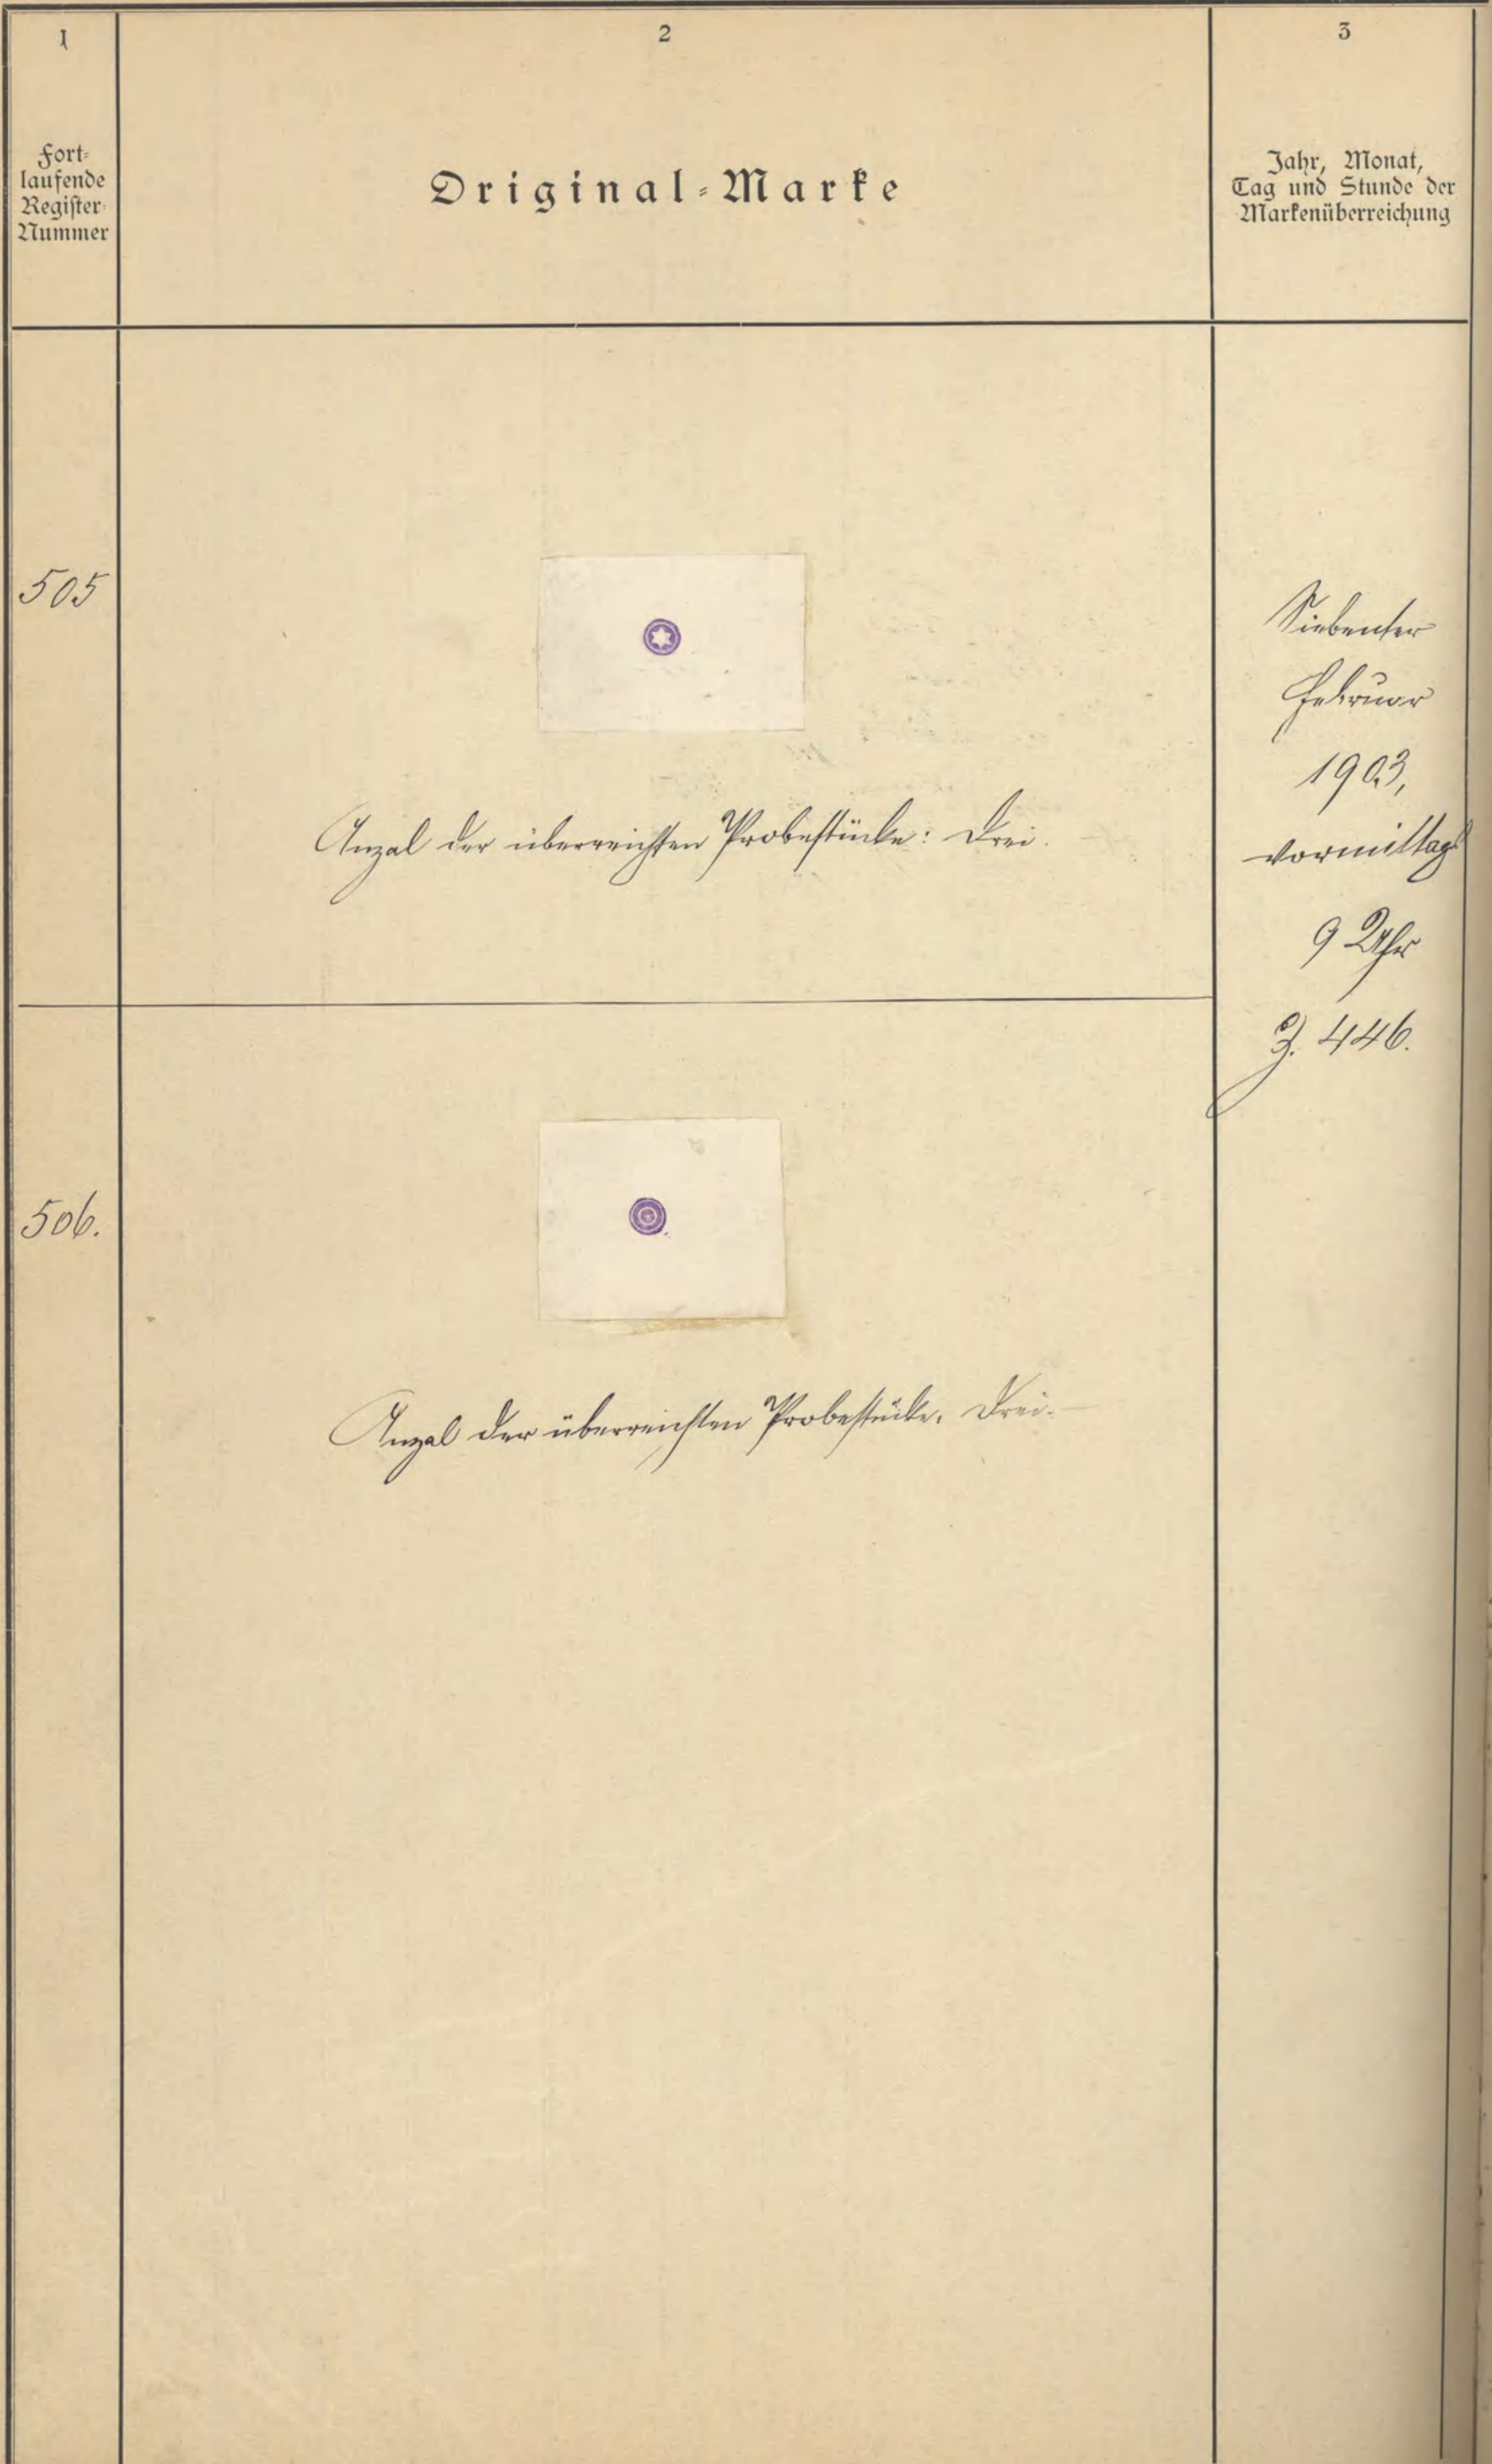 1
2
3
Fort-
laufende
Register-
Nummer
Original-Marke
Jahr, Monat,
Tag und Stunde der
Markenüberreichung
505
Anzal der überreichten Probestücke: Drei.
Siebenter
Februar
1903,
vormittags
9 Uhr
Z. 446.
506.
Anzal der überreichten Probestücke: Drei.